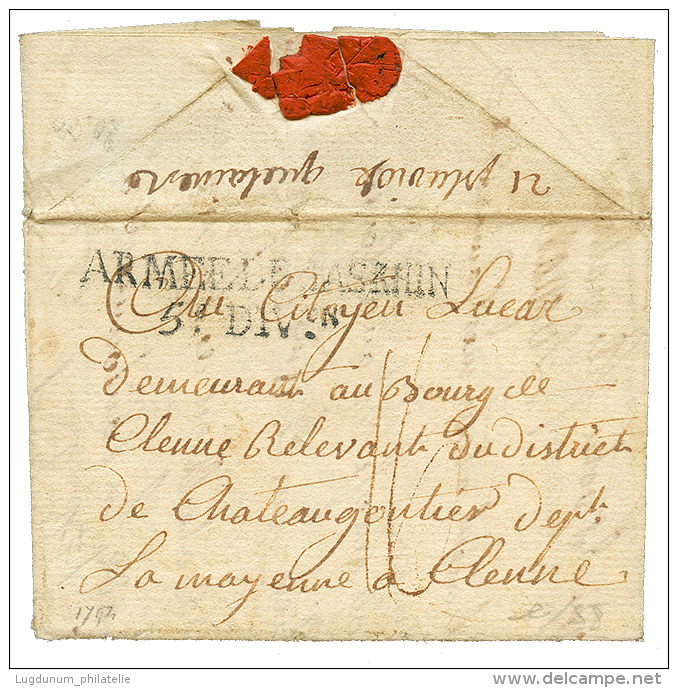 21 pluviose quelaines
ARMEE DE BAS RHIN
51 DIV.n
Au Citoyen Lucas
Demeurant au Bourg de
Clenne Relevant du district
de Chateaugontier dept
La mayenne a Clenne
1794
Lugdunum_philatelie
www.delcampe.net